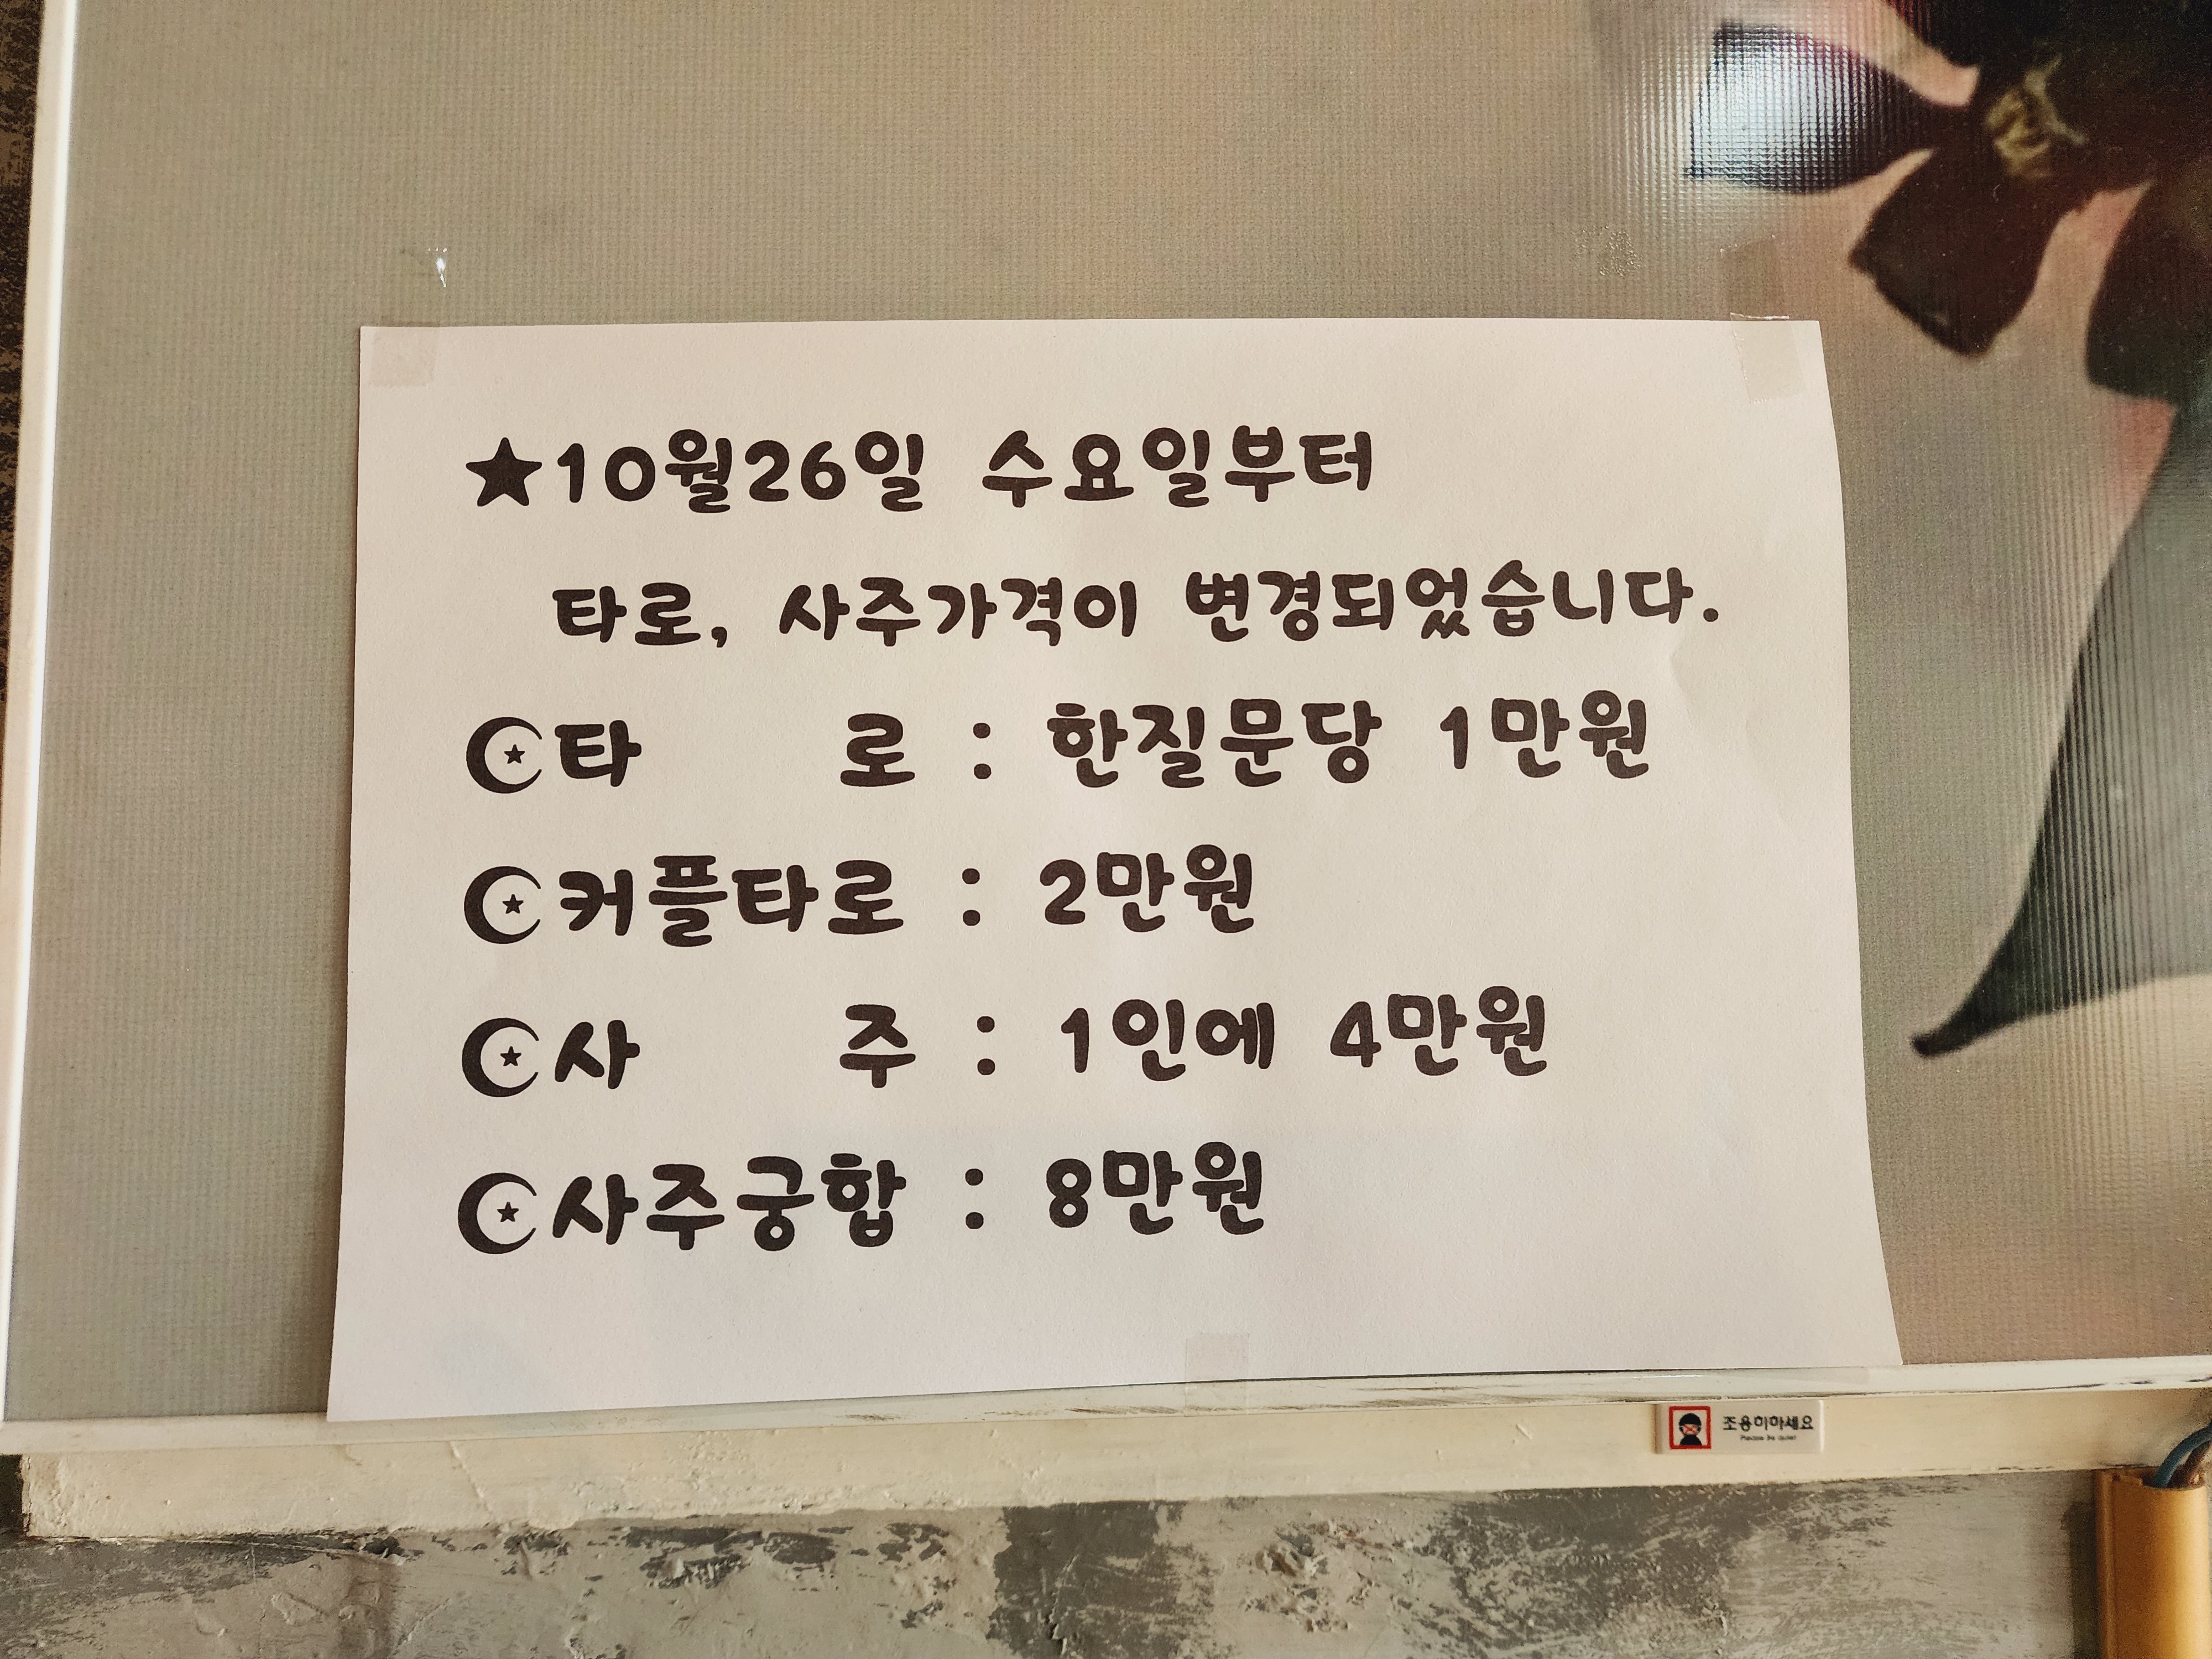 ★10월26일 수요일부터
타로, 사주가격이 변경되었습니다.
☪타 로 : 한질문당 1만원
☪커플타로 : 2만원
☪사 주 : 1인에 4만원
☪사주궁합 : 8만원
조용히하세요
Please be quiet